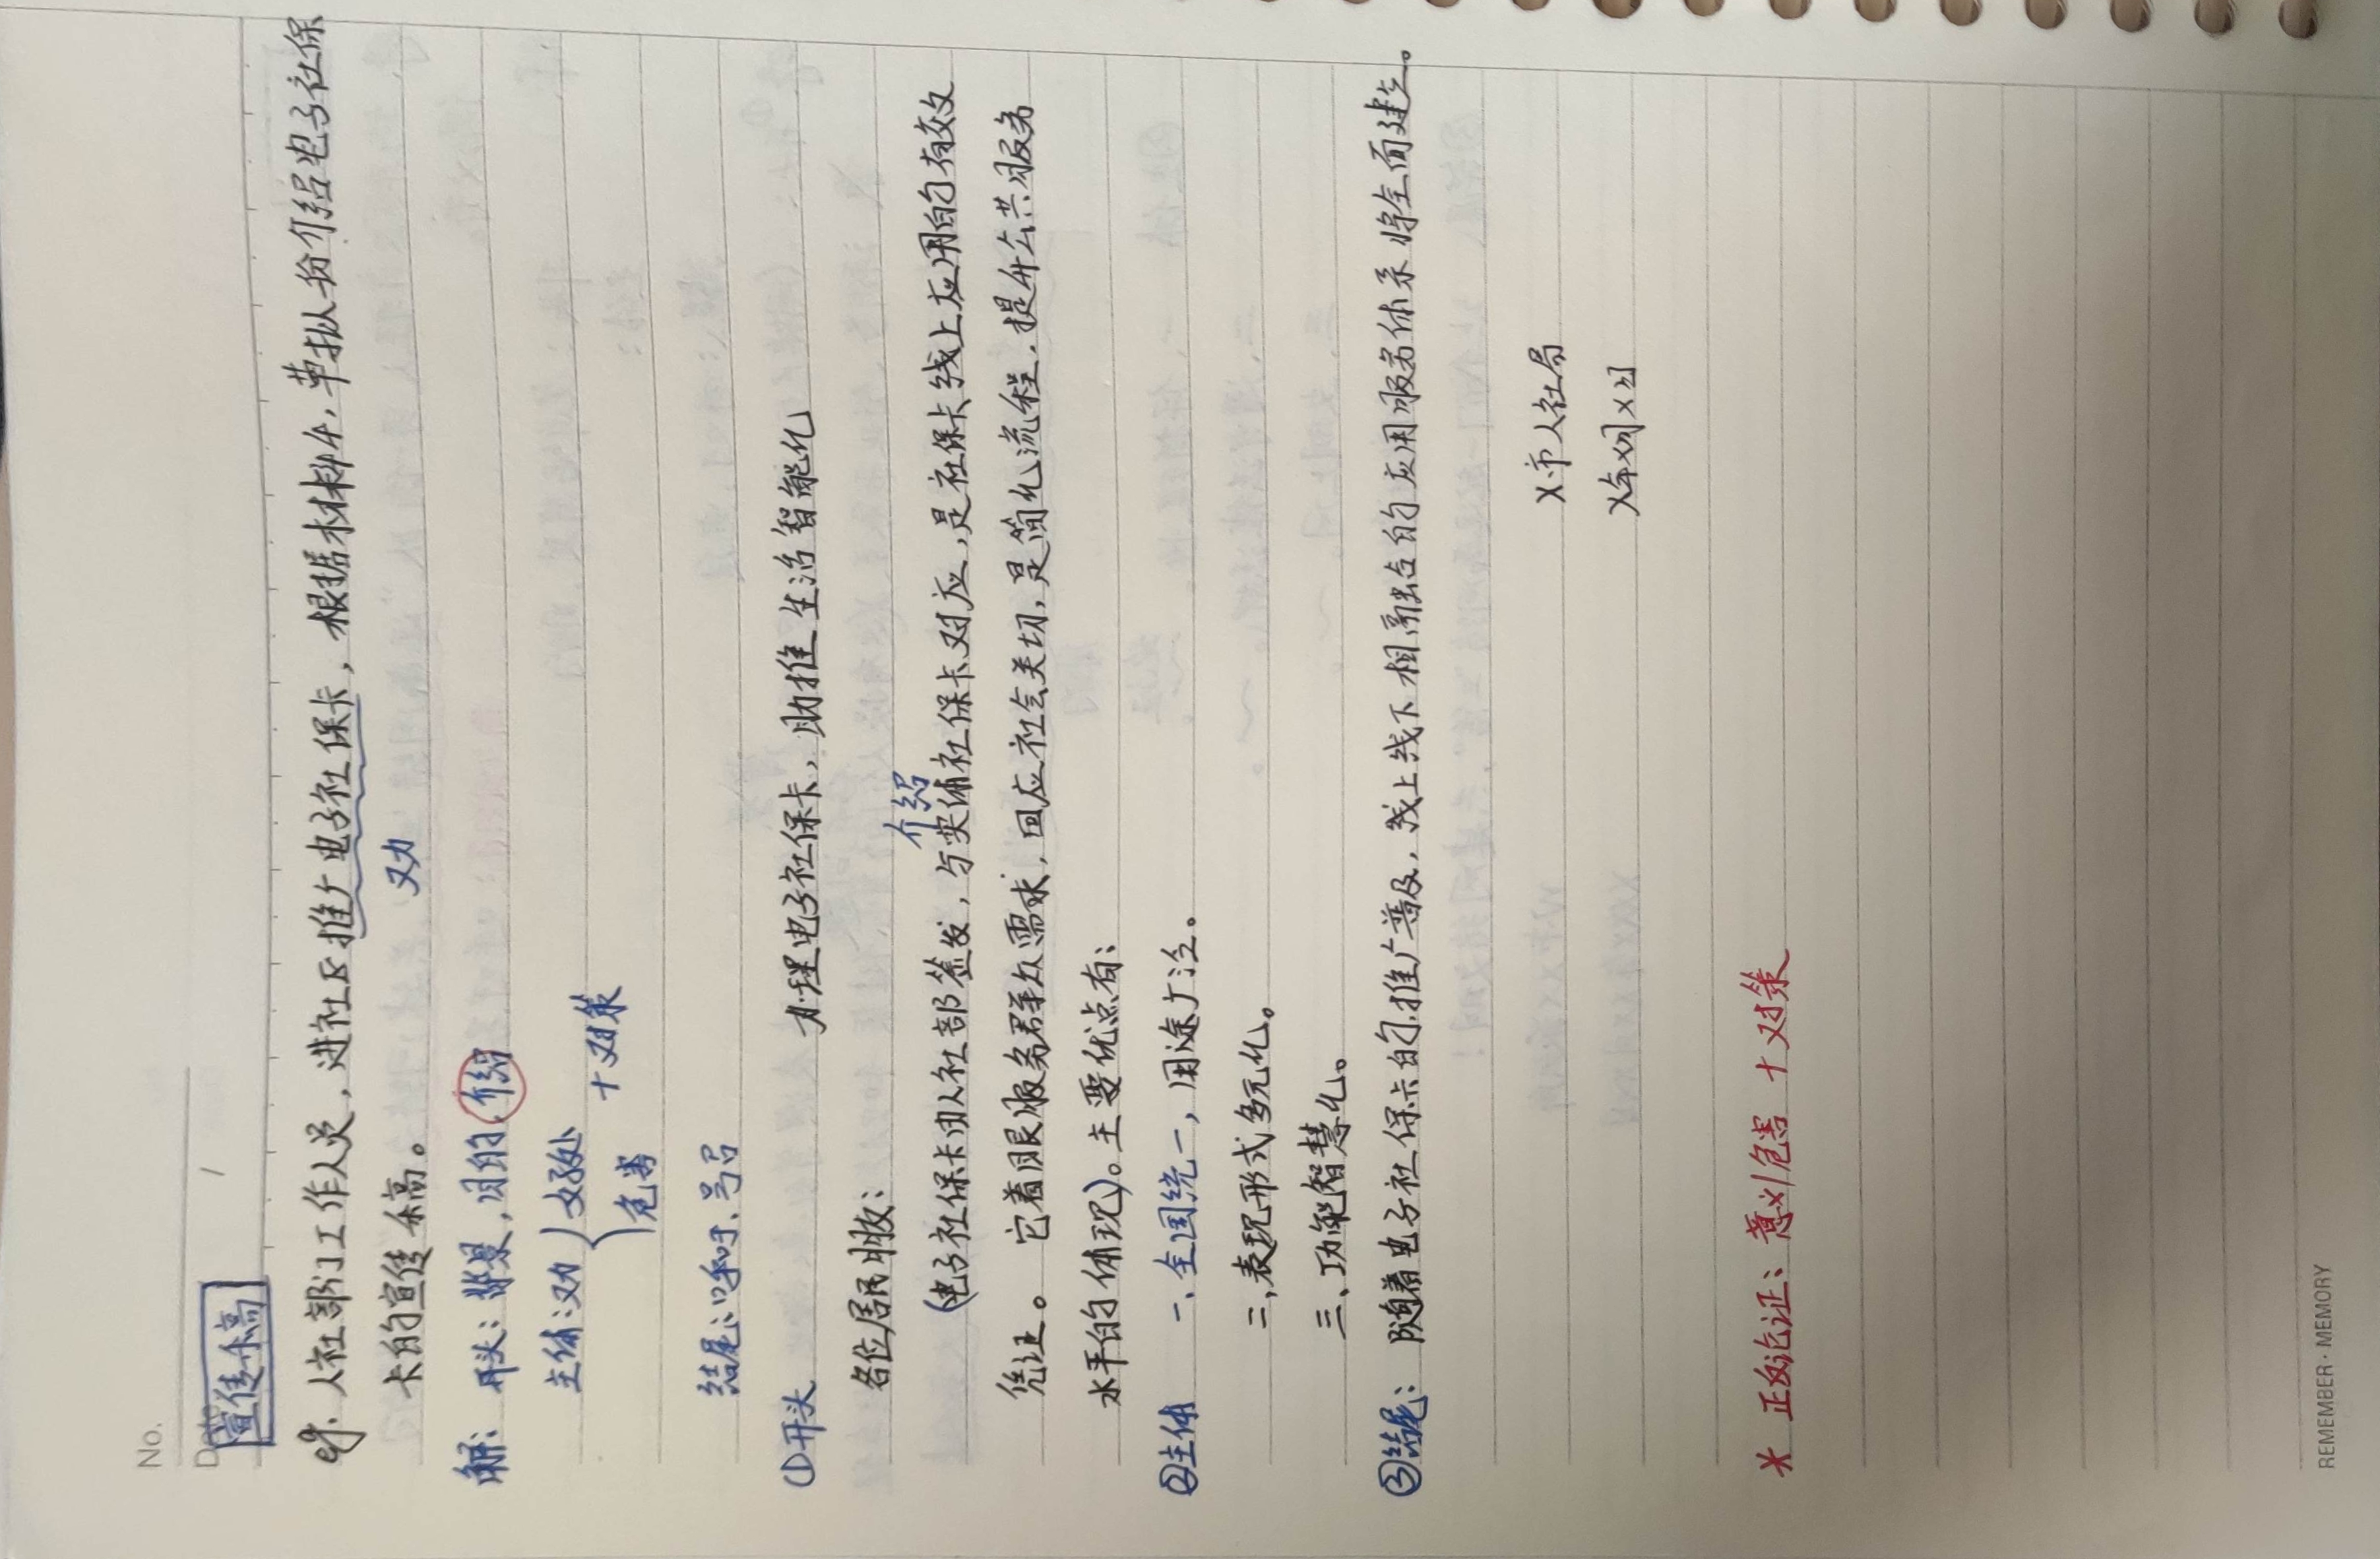 No.
Date
宣传稿
eg. 人社部门工作人员，进社区推广电子社保卡，根据材料4，草拟一份介绍电子社保
卡的宣传稿。
对力
解：开头：背景，目的，介绍
主体：对力 好处
危害
+对策
结尾：呼吁、号召
①开头 办理电子社保卡，助推生活智能化
各位居民朋友：
介绍
（电子社保卡由人社部签发，与实体社保卡对应，是社保卡线上应用的有效
凭证。它着眼服务群众需求，回应社会关切，是简化流程，提升公共服务
水平的体现）。主要优点有：
②主体 一、全国统一，用途广泛。
二、表现形式多元化。
三、功能智慧化。
③结尾：随着电子社保卡的推广普及，线上线下相融合的应用服务体系将全面建立。
X市人社局
X年X月X日
* 正反论证：意义/危害 + 对策
REMEMBER · MEMORY